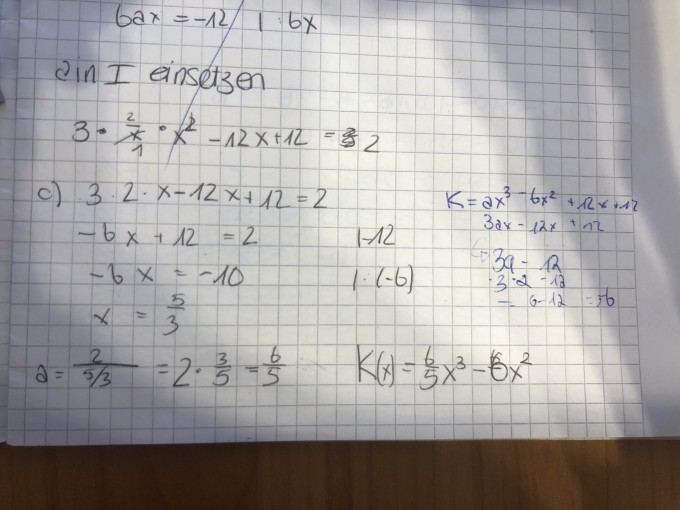 6ax = -12 | : 6x
a in I einsetzen
3 · 2/x · x² - 12x + 12 = 2
c) 3 · 2 · x - 12x + 12 = 2
-6x + 12 = 2 | -12
-6x = -10 | : (-6)
x = 5/3
a = 2/(5/3) = 2 · 3/5 = 6/5
K(x) = 6/5 x³ - 6x²
K = ax³ - 6x² + 12x + 12
3ax - 12x + 12
3a - 12
3 · 2 - 12
= 6 - 12 = -6